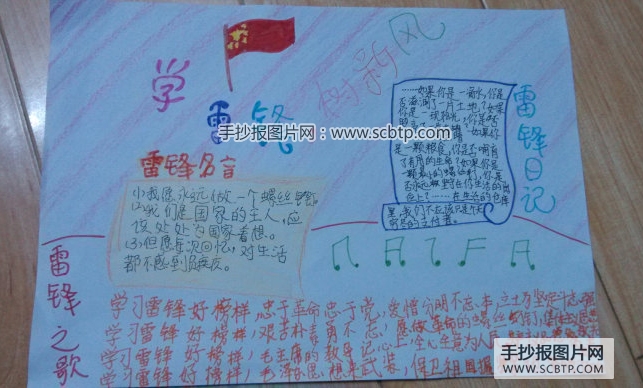 学雷锋
树新风
手抄报图片网：www.scbtp.com
雷锋名言
(1)我愿永远做一个螺丝钉。
(2)我们是国家的主人，应
该处处为国家着想。
(3)但愿每次回忆，对生活
都不感到负疚。
雷锋日记
……如果你是一滴水，你是
否滋润了一片土地？如果
你是一线阳光，你是否
如果你
是一颗粮食，你是否哺育
了有用的生命？如果你是
最小的螺丝钉，你是
否永远坚守在你生活的岗
位上？……在生活的仓库
里，我们不应该只是个无
穷尽的支付者。
雷锋之歌
学习雷锋好榜样，忠于革命忠于党，爱憎分明不忘本，立
学习雷锋好榜样，艰苦朴素勇不忘，愿做革命的螺丝钉，集体
学习雷锋好榜样，毛主席的教导记心上，全心全意为人民
学习雷锋好榜样，毛泽东思想来武装，保卫祖国握
手抄报图片网
WWW.SCBTP.COM